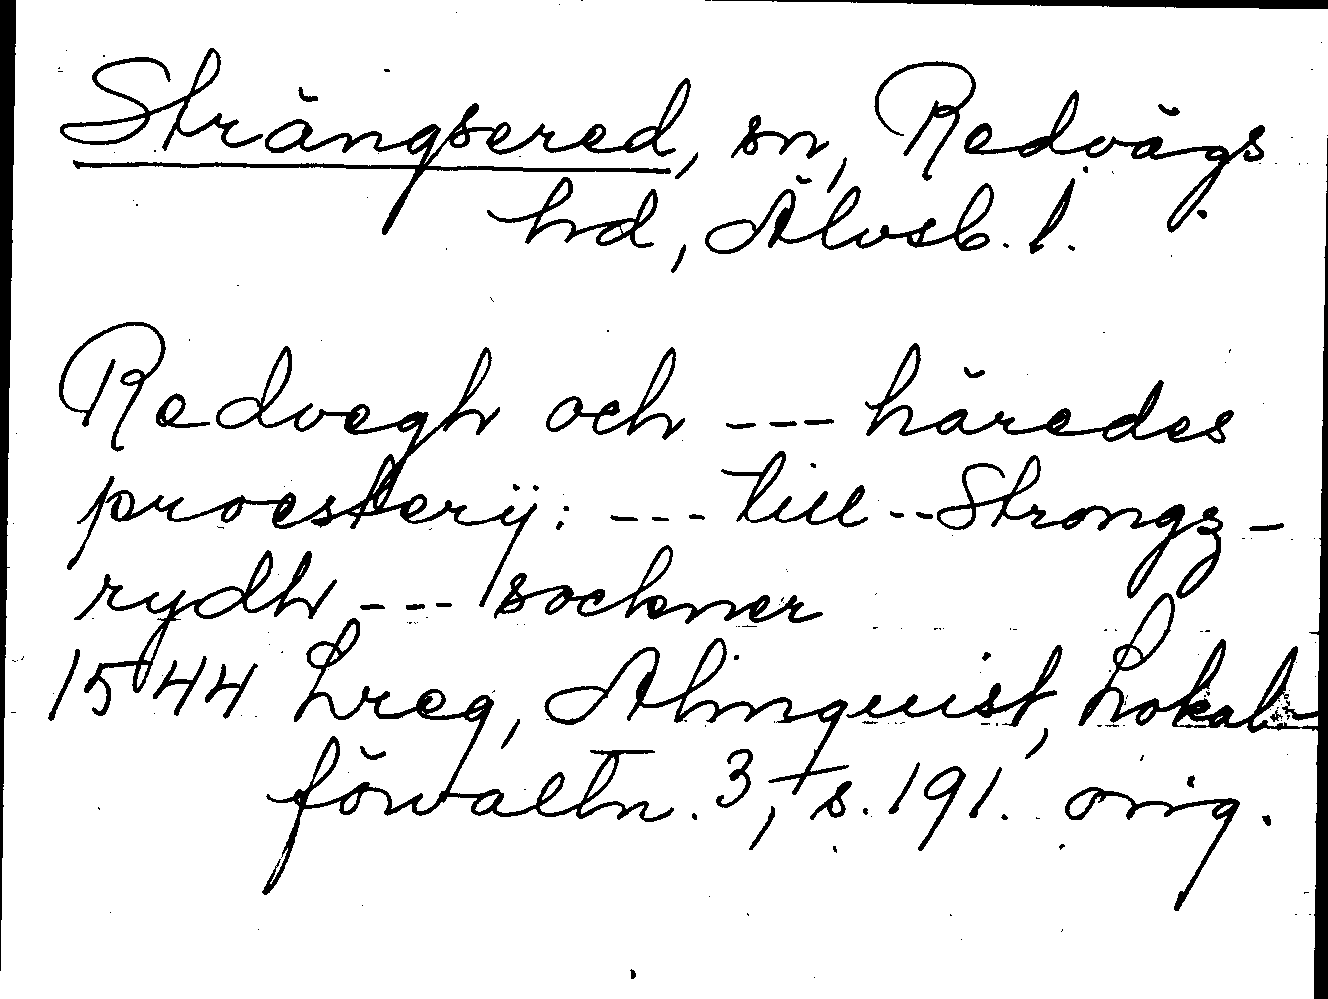 Strängsered, sn, Redvägs
hd, Älvsb. l.
Redvegh och --- häredes
proesterÿ: --- till -- Strongz-
rydh --- sockner
1544 Lreg, Almquist, Lokal-
förvaltn. 3, s. 191. orig.